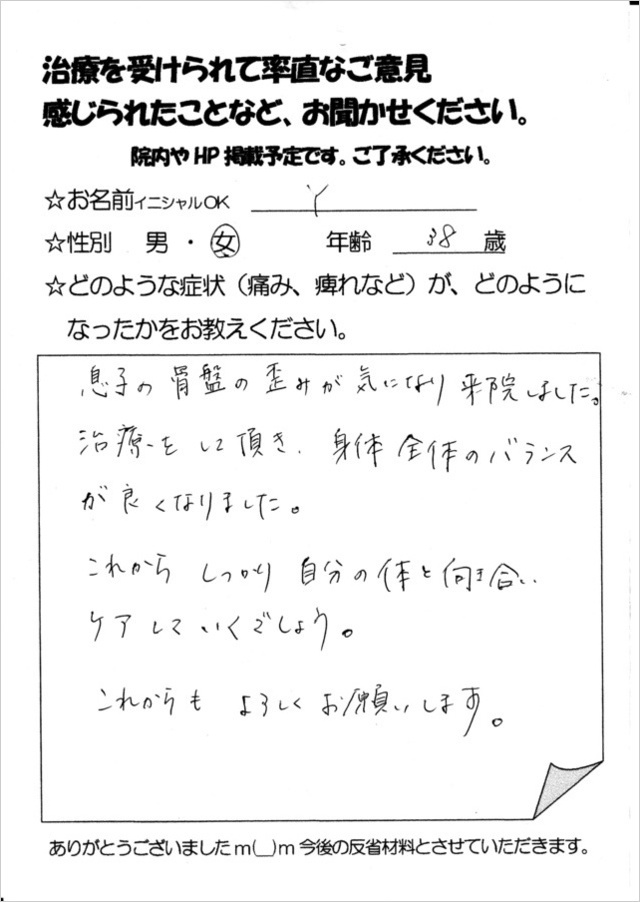 治療を受けられて率直なご意見
感じられたことなど、お聞かせください。
院内やHP掲載予定です。ご了承ください。
☆お名前イニシャルOK Y
☆性別 男・女 年齢 38 歳
☆どのような症状（痛み、痺れなど）が、どのように
なったかをお教えください。
息子の骨盤の歪みが気になり来院しました。
治療をして頂き、身体全体のバランス
が良くなりました。
これからしっかり自分の体と向き合い
ケアしていくでしょう。
これからもよろしくお願いします。
ありがとうございましたm(__)m今後の反省材料とさせていただきます。